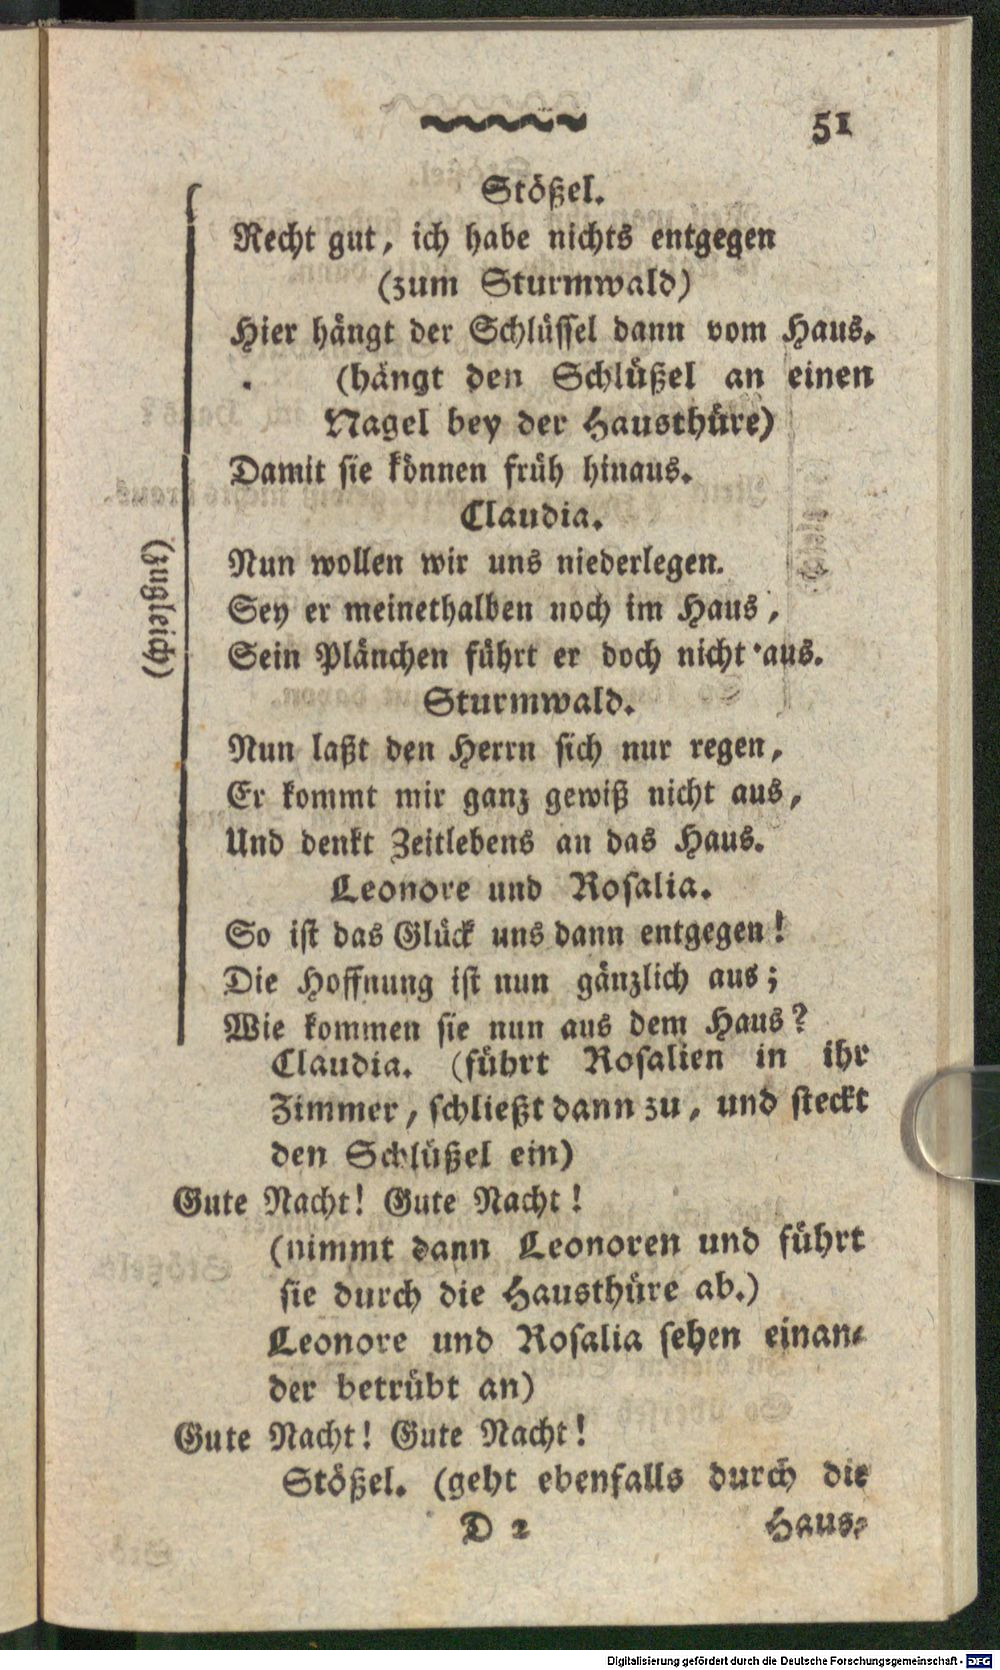 51
Stößel.
Recht gut, ich habe nichts entgegen
(zum Sturmwald)
Hier hängt der Schlüssel dann vom Haus.
(hängt den Schlüßel an einen
Nagel bey der Hausthüre)
Damit sie können früh hinaus.
Claudia.
Nun wollen wir uns niederlegen.
Sey er meinethalben noch im Haus,
Sein Plänchen führt er doch nicht aus.
(zugleich)
Sturmwald.
Nun laßt den Herrn sich nur regen,
Er kommt mir ganz gewiß nicht aus,
Und denkt Zeitlebens an das Haus.
Leonore und Rosalia.
So ist das Glück uns dann entgegen!
Die Hoffnung ist nun gänzlich aus;
Wie kommen sie nun aus dem Haus?
Claudia. (führt Rosalien in ihr
Zimmer, schließt dann zu, und steckt
den Schlüßel ein)
Gute Nacht! Gute Nacht!
(nimmt dann Leonoren und führt
sie durch die Hausthüre ab.)
Leonore und Rosalia sehen einan-
der betrübt an)
Gute Nacht! Gute Nacht!
Stößel. (geht ebenfalls durch die
D 2 Haus-
Digitalisierung gefördert durch die Deutsche Forschungsgemeinschaft - DFG